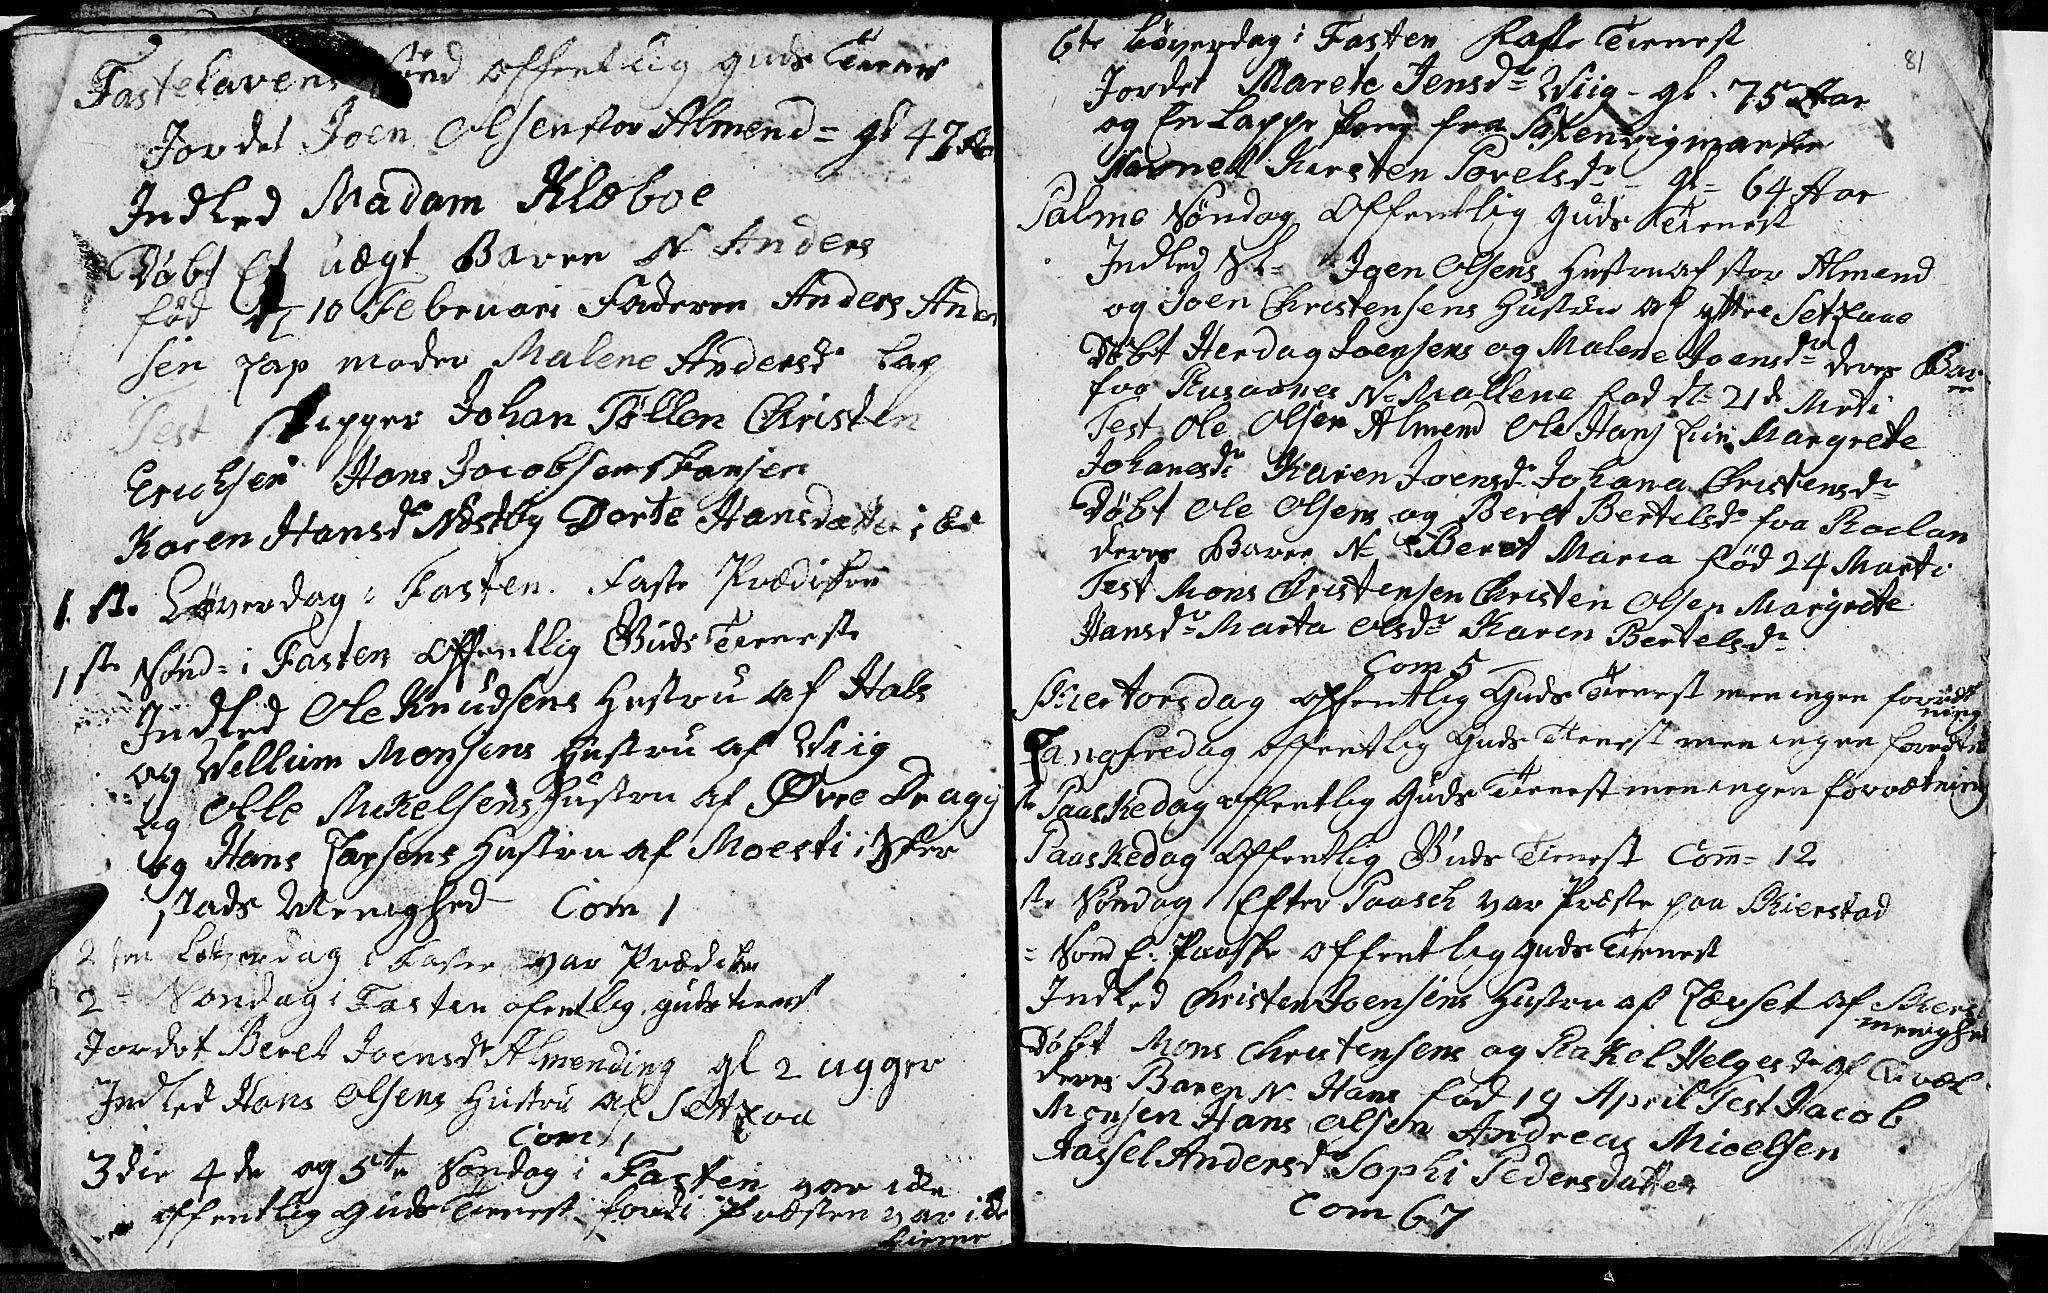 Fastelavens Sønd offentlig guds Tienist
Jordet Joen Olsen stor Almend = gl 47 Aar
Indled Madam Kleboe
Døbt Et uægt Baren N Anders
fød d 10 Februari Faderen Anders Ander
sen Lap moder Malene Andersdr Lap
Test skipper Johan Tøllen Christen
Erichsen Hans Jacobsen
Karen Hansdr Næstby Dorte Hansdatter
1 ste Løverdag i Fasten. Faste Prædiken
1 ste Sønd = i Fasten offentlig Guds Tieneste
Indled Ole Knudsens Hustru af Hals
og Wellum Monsens Hustru af Wiig
og Olle Mikelsens Hustru af Øvre Dragy
og Hans Larsens Hustru af Moesti i Sker
stads Menighed Com 1
2 den Løverdag i Fasten var Prædiken
2 = Søndag i Fasten ofentlig guds tienest
Jordet Beret Joensdr Almending gl 2 ugger
Indled Hans Olsens Hustru af Setzaa
Com 1
3die 4de og 5te Søndag i Fasten var icke
offentlig Guds Tienest fordi Præsten var icke
hieme
81
6te Løverdag i Fasten Faste Tienest
Jordet Marete Jensdr Wiig - gl. 75 Aar
og En Lappe fra
Navnet Kirsten Povelsdr = gl = 64 Aar
Palme Søndag offentlig guds Tienest
Indled Joen Olsens Hustru af stor Almend
og Joen Christensens Hustru af yttre Setzaae
Døbt Herdag Joensens og Malene Joensdr deres Bar
fra Rusaanes N Mallene fød d 21de Marti
Test Ole Olsen Almend Ole Hans Margrete
Johanesdr Karen Joensdr Johana Christensdr
Døbt Ole Olsens og Beret Bertelsdr fra Roclan
deres Baren N Beret Maria fød 24 Marti
Test Mons Christensen Christen Olsen Margrete
Hansdr Marta Olsdr Karen Bertelsdr
Com 5
Skiertorsdag offentlig Guds Tienest men ingen forrett
ning
Langfredag offentlig Guds Tienest men ingen forretn
te Paaskedag offentlig Guds Tienest men ingen forrætning
Paaskedag offentlig Guds Tienest Com = 12
te Søndag Efter Paasch var Præste paa Skierstad
= Sønd E. Paaske offentlig guds Tienest
Indled Christen Joensens Hustru af Løvset af Skier
menighed
Døbt Mons Christensens og Rakel Helgesdr af
deres Baren N Hans fød 19 April Test Jacob
Monsen Hans Olsen Andreas Micelsen
Hassel Andersdr Sophi Pedersdatter
Com 67